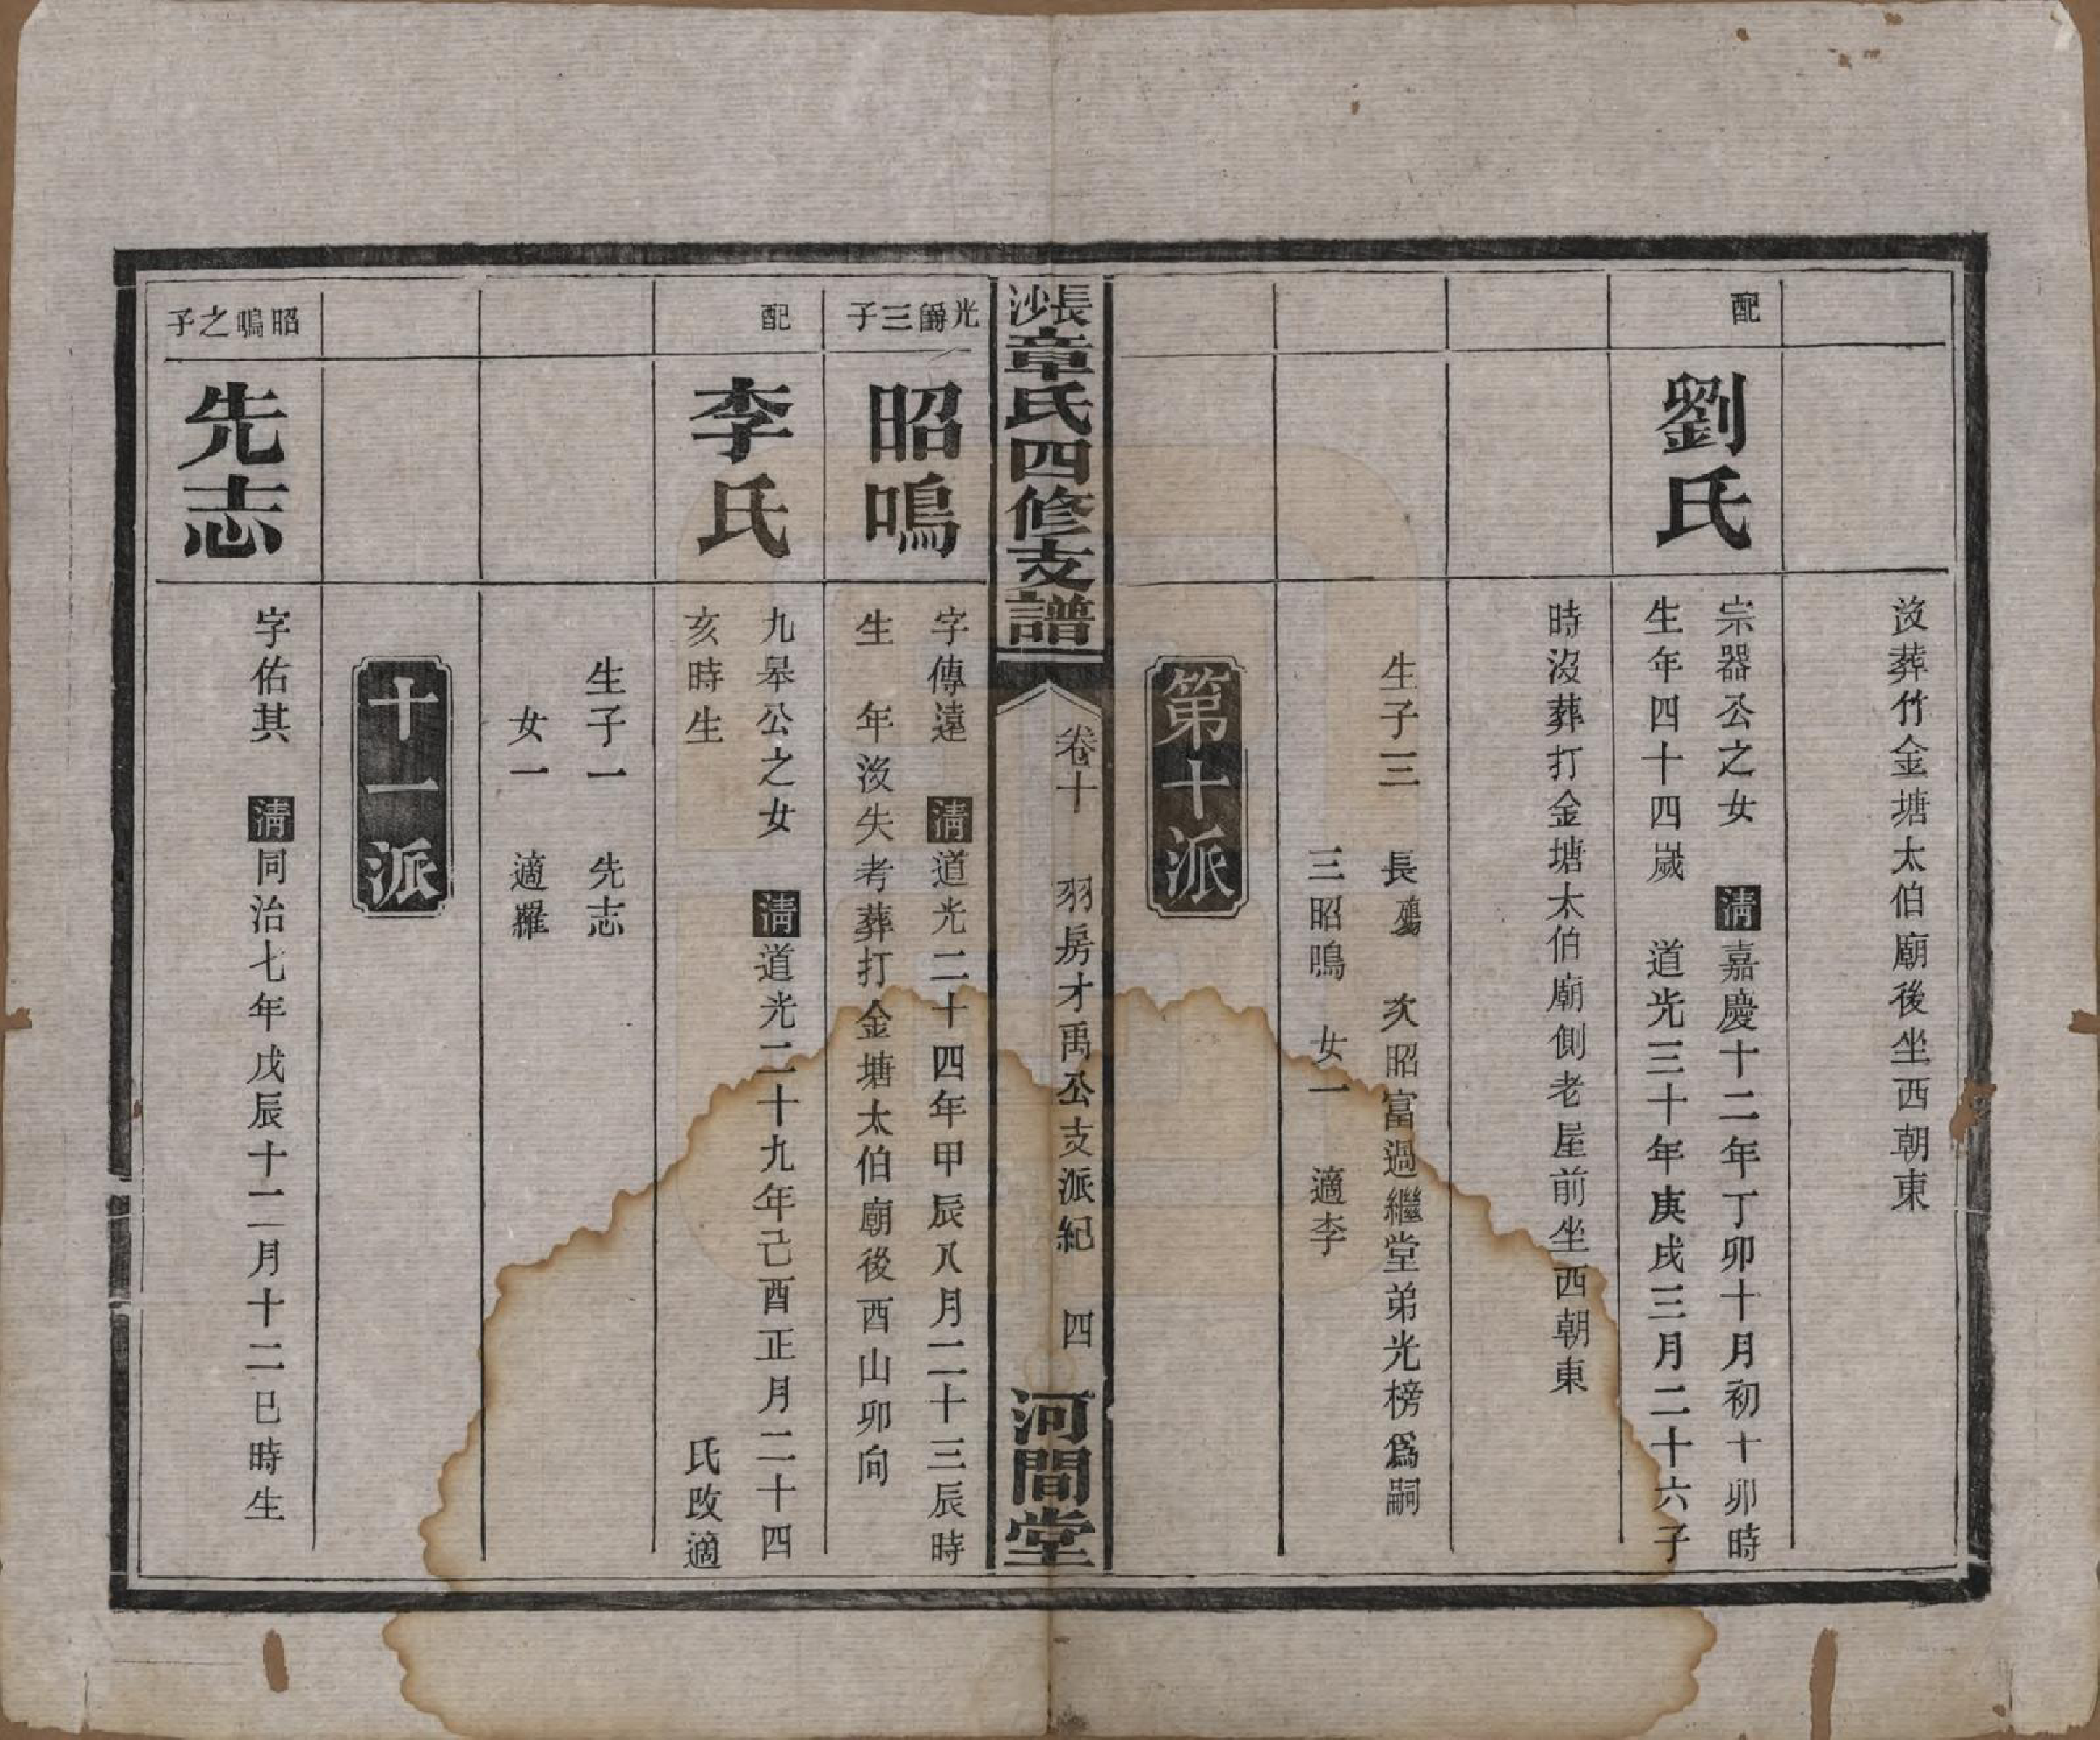 沒葬竹金塘太伯廟後坐西朝東
配
劉氏
宗器公之女 清嘉慶十二年丁卯十月初十卯時
生年四十四歲 道光三十年庚戌三月二十六子
時沒葬打金塘太伯廟側老屋前坐西朝東
生子三 長殤 次昭富過繼堂弟光榜爲嗣
三昭鳴 女一 適李
第十派
長沙章氏四修支譜
卷十 羽房才禹公支派紀 四
河間堂
光爵三子
昭鳴
字傳遠 清道光二十四年甲辰八月二十三辰時
生 年沒失考葬打金塘太伯廟後酉山卯向
配
李氏
九皋公之女 清道光二十九年己酉正月二十四
亥時生 氏改適
生子一 先志
女一 適羅
十一派
昭鳴之子
先志
字佑其 清同治七年戊辰十二月十二巳時生